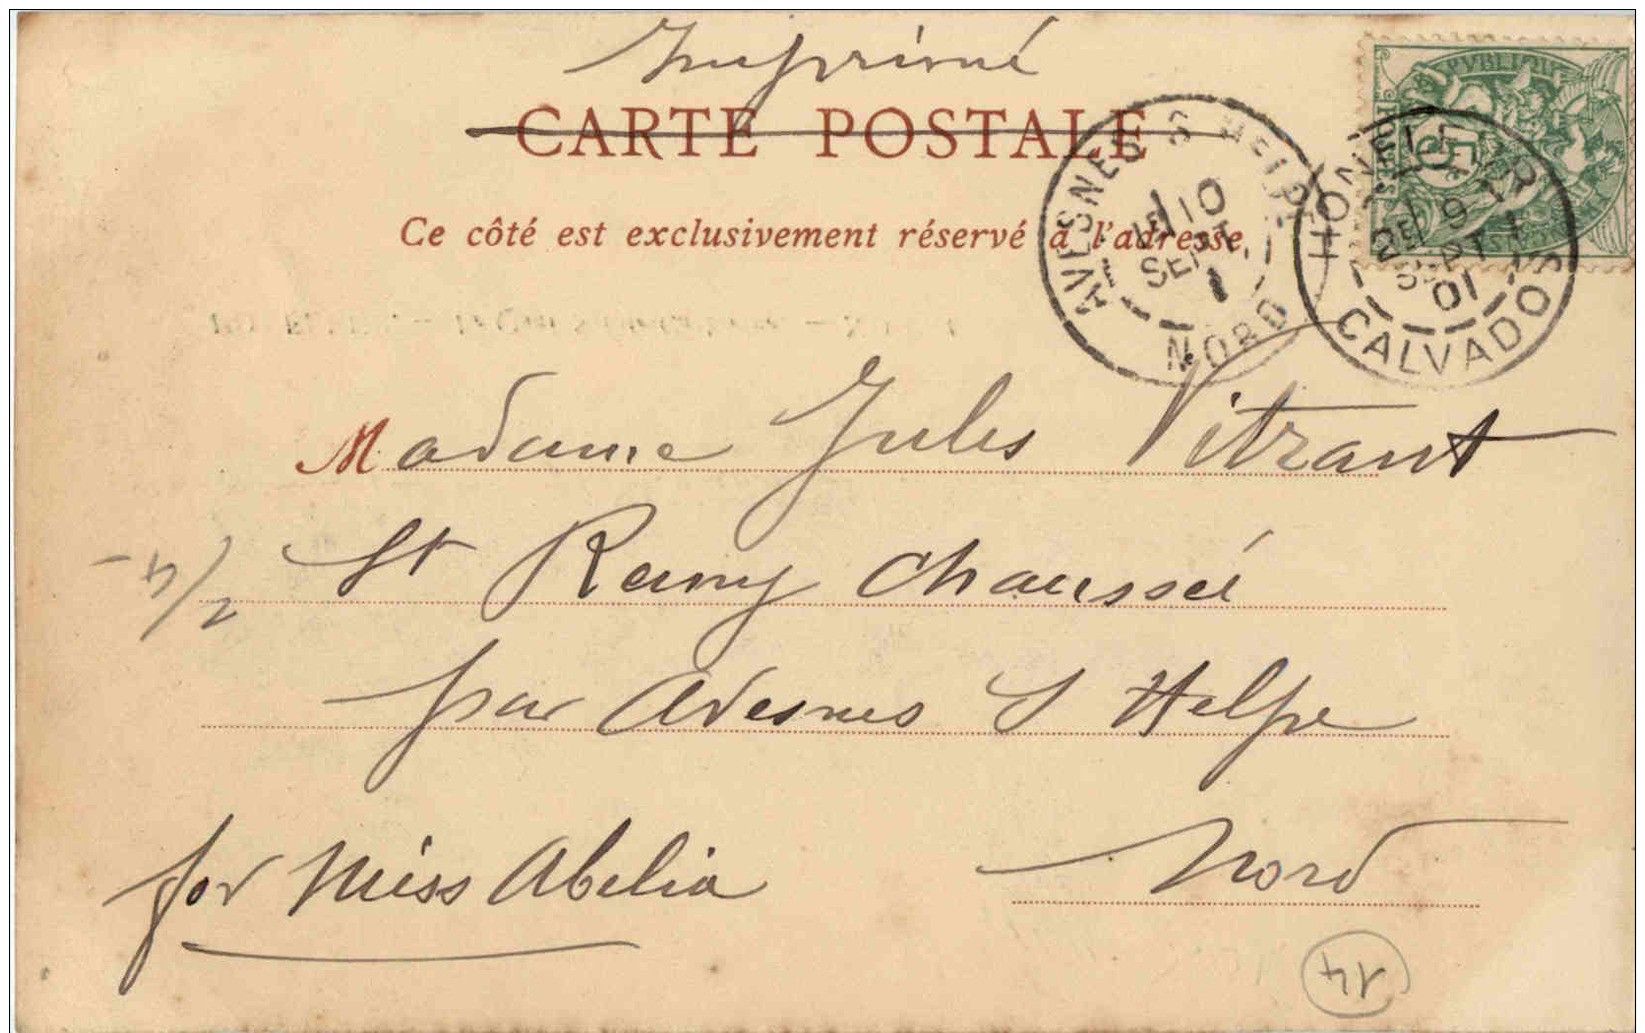 Imprimé
CARTE POSTALE
Ce côté est exclusivement réservé à l'adresse.
AVESNES S HELPE
10
SEPT
NORD
HONFLEUR
9
SEPT
01
CALVADOS
5
Madame Jules Vitrant
St Remy Chaussée
par Avesnes S Helpe
Nord
for Miss Abelia
14